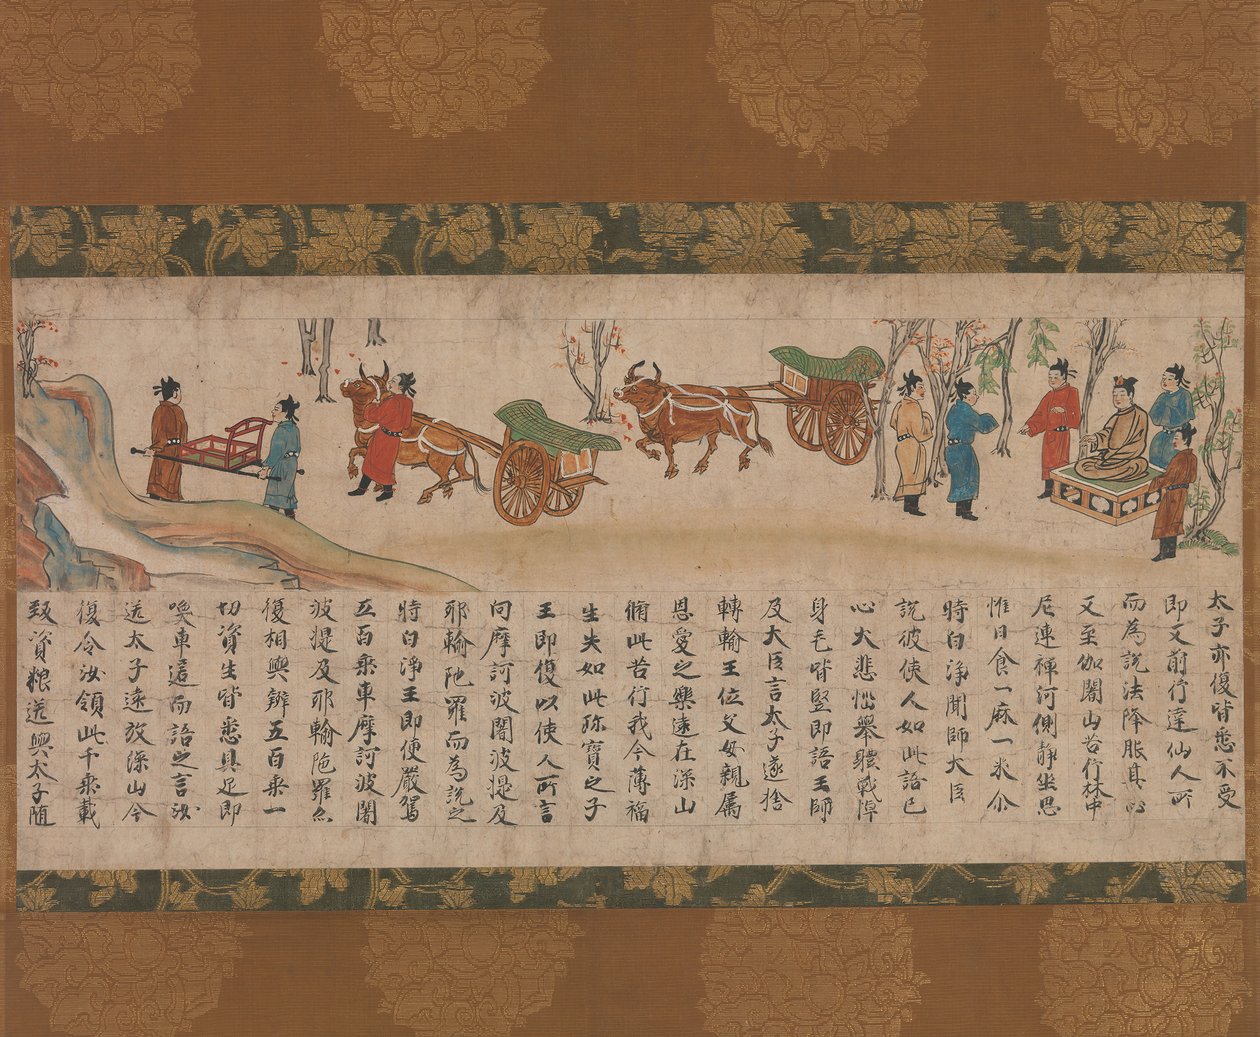 太子亦復皆悉不受
即又前行達仙人所
而為説法降服其心
又至伽闍山苦行林中
尼連禪河側静坐思
惟日食一麻一米尒
時白浄聞師大臣
説彼使人如此語已
心大悲惱舉體戰悼
身毛皆竪即語王師
及大臣言太子遂捨
轉輪王位父母親屬
恩愛之樂遠在深山
脩此苦行我今薄福
生失如此珎寶之子
王即復以使人所言
向摩訶波闍波提及
耶輸陁羅而為説之
時白浄王即便嚴駕
五百乗車摩訶波闍
波提及耶輸陁羅亦
復相與辦五百乗一
切資生皆悉具足即
喚車匿而語之言汝
送太子遠放深山今
復令汝領此千乗載
致資粮送與太子随